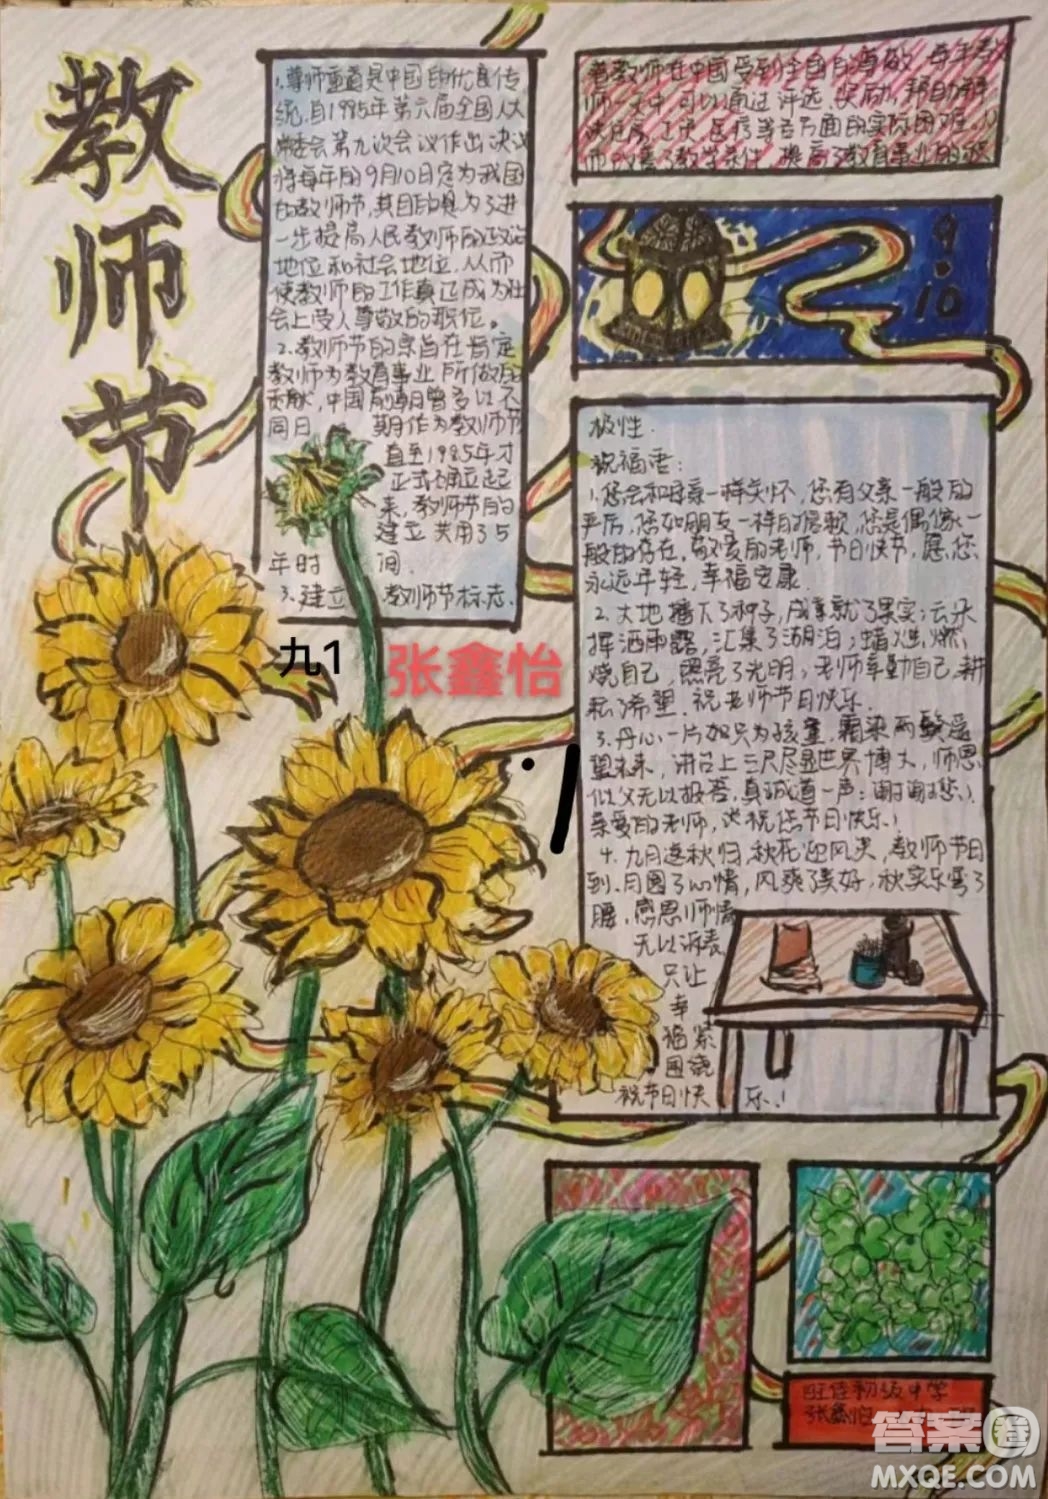 教师节
1.尊师重道是中国的优良传
统,自1985年第六届全国人大
常委会第九次会议作出决议
将每年的9月10日定为我国
的教师节,其目的是为了进
一步提高人民教师的政治
地位和社会地位,从而
使教师的工作真正成为社
会上受人尊敬的职位。
2.教师节的宗旨在肯定
教师为教育事业所做的
贡献,中国
同日期作为教师节
直至1985年才
正式确立起
来,教师节的
建立共用了5
年时间.
3.建立教师节标志.
着教师在中国受到全国的尊敬,每年教
师一天中,可以通过评选、奖励,帮助解
决住房、医疗等各方面的实际困难,
改善了教学条件,提高了教育事业的积
9.10
极性.
祝福语:
1.您会和母亲一样关怀,您有父亲一般的
严厉,您如朋友一样的信赖,您是偶像一
般的存在,敬爱的老师,节日快节,愿您
永远年轻,幸福安康.
2.大地播下了种子,成就了果实;云朵
挥洒雨露,汇集了湖泊;蜡烛燃
烧自己,照亮了光明;老师辛勤自己,耕
耘了希望.祝老师节日快乐.
3.丹心一片如只为孩童,霜染两鬓遥
望未来,讲台上三尺尽显世界博大,师恩
似父无以报答,真诚道一声:谢谢您!
亲爱的老师,祝您节日快乐!
4.九月逐秋归,秋花迎风笑,教师节日
到.月圆了心情,风爽了美好,秋实乐弯了
腰,感恩师情
无以诉表
只让
幸
福紧
围绕
祝节日快乐!
九1 张鑫怡
旺佳初级中学
张鑫怡
答案圈
MXQE.COM